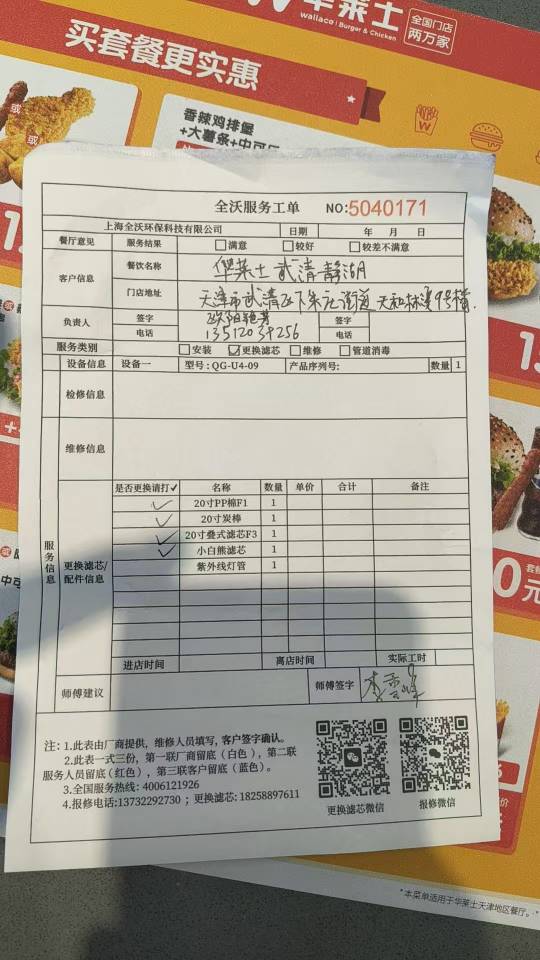 华莱士
wallace | Burger & Chicken
全国门店
两万家
买套餐更实惠
香辣鸡排堡
+大薯条+中可
或
或
全沃服务工单 NO:5040171
上海全沃环保科技有限公司 日期 年 月 日
餐厅意见 服务结果 满意 较好 较差不满意
客户信息 餐饮名称 华莱士武清静湖
门店地址 天津市武清区下朱庄街道天和林溪9号楼
负责人 签字 签字
电话 13512039256 电话
服务类别 安装 更换滤芯 维修 管道消毒
设备信息 设备一 型号:QG-U4-09 产品序列号: 数量 1
检修信息
维修信息
服务信息
更换滤芯/配件信息
是否更换请打✓ 名称 数量 单价 合计 备注
✓ 20寸PP棉F1 1
✓ 20寸炭棒 1
✓ 20寸叠式滤芯F3 1
✓ 小白熊滤芯 1
紫外线灯管 1
进店时间 离店时间 实际工时
师傅建议 师傅签字
注:1.此表由厂商提供，维修人员填写，客户签字确认。
2.此表一式三份，第一联厂商留底（白色），第二联
服务人员留底（红色），第三联客户留底（蓝色）。
3.全国服务热线: 4006121926
4.报修电话:13732292730 ; 更换滤芯: 18258897611
更换滤芯微信 报修微信
0元
*本菜单适用于华莱士天津地区餐厅。